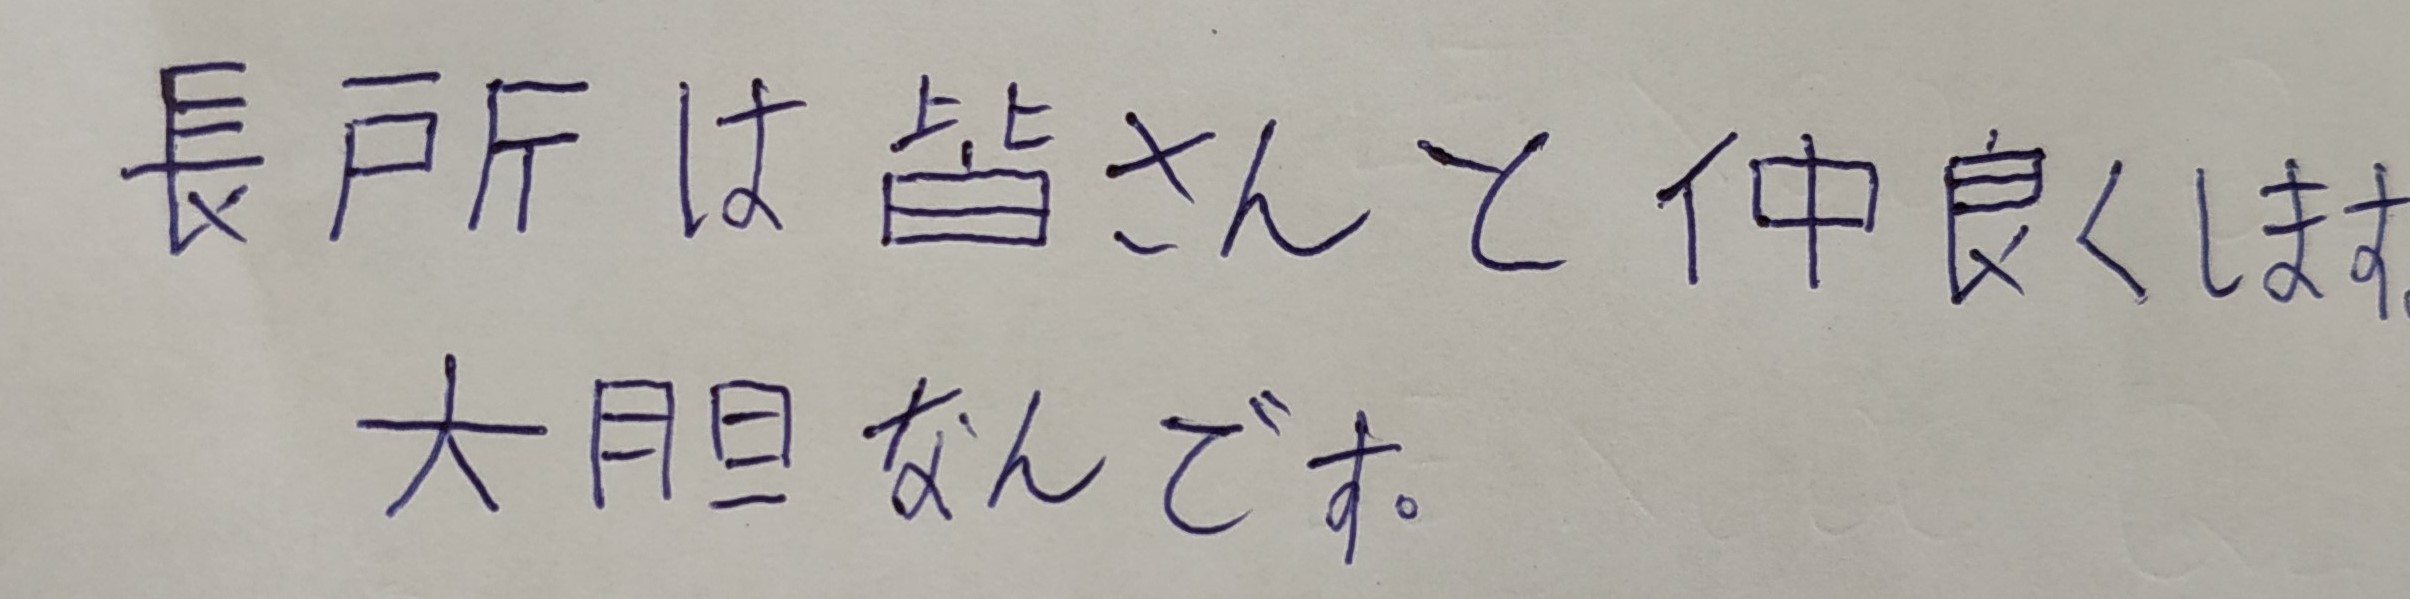 長所は皆さんと仲良くします。
大胆なんです。